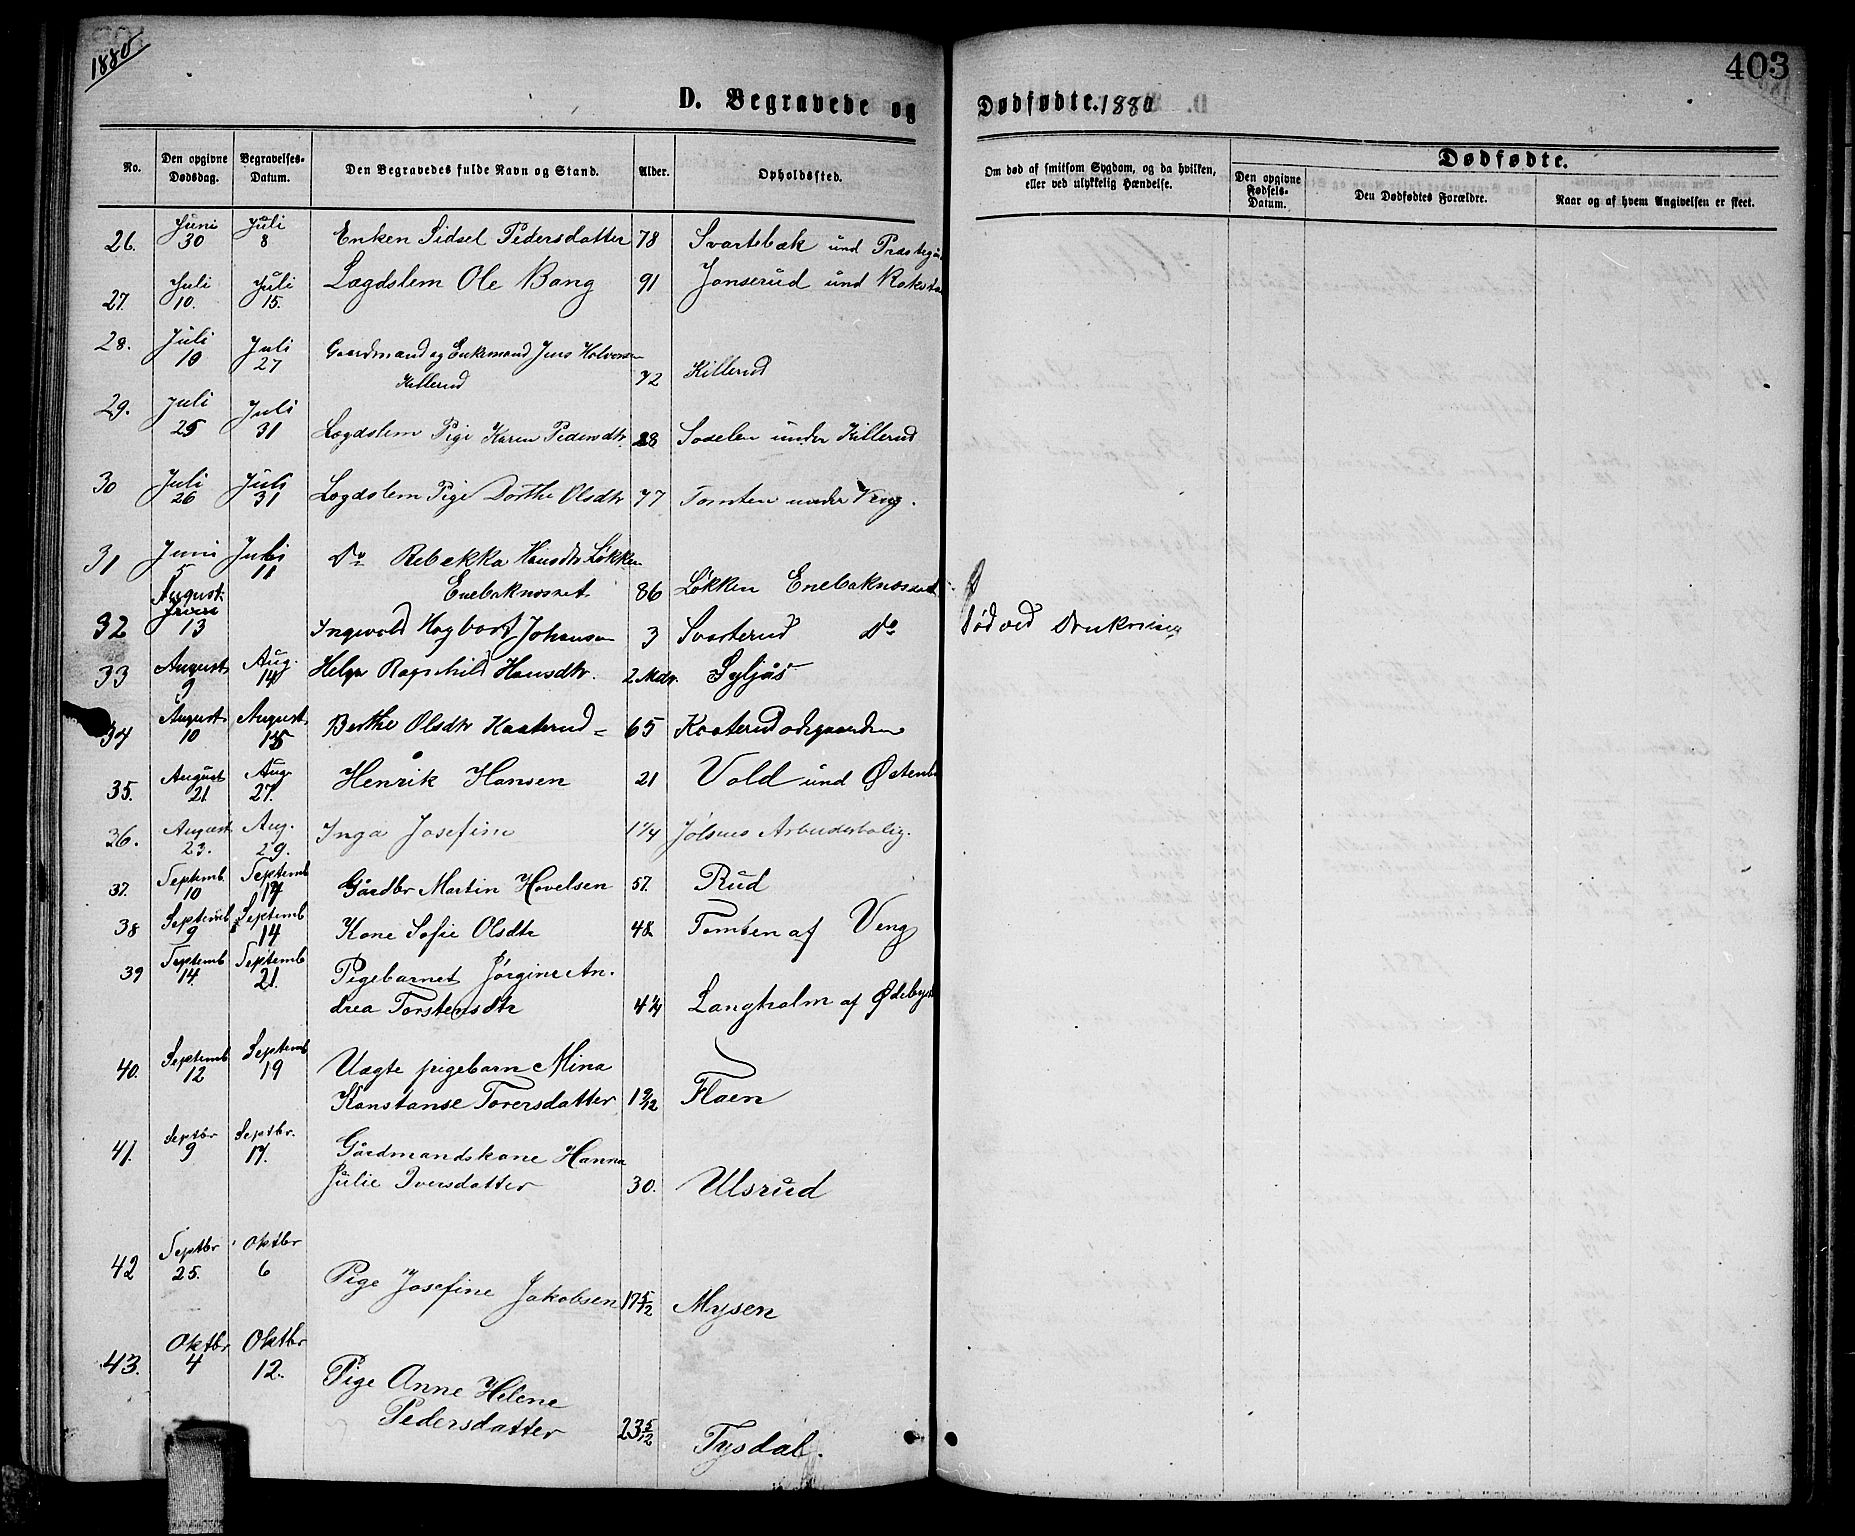 1880
403
D. Begravede og Dødfødte. 1880
No.
Den opgivne Dødsdag.
Begravelses-Datum.
Den Begravedes fulde Navn og Stand.
Alder.
Opholdssted.
Om død af smitsom Sygdom, og da hvilken, eller ved ulykkelig Hændelse.
Dødfødte.
Den opgivne Fødsels-Datum.
Den Dødfødtes Forældre.
Naar og af hvem Angivelsen er skeet.
26. Juni 30 Juli 8 Enken Sidsel Pedersdatter 78 Svartsbæk und Præstegår
27. Juli 10. Juli 15. Lægdslem Ole Bang 91 Jonserud und Rakst
28. Juli 10 Juli 27 Gaardmand og Enkemand Jens Halvorsen
Killerud 72 Killerud
29. Juli 25 Juli 31 Lægdslem Pige Karen Pedersdtr. 28 under Killerud
30 Juli 26 Juli 31 Lægdslem Pige Dorthe Olsdtr 77 Tomten under Veng.
31 Juni 5 Juli 11 Do Rebekka Hansdtr Løkken
Enebaknesset 86 Løkken Enebaknesset
32 August 13 Ingvald Hagbart Johansen 3 Svarterud Do Død ved Drukning
33 August 9 Aug. 14 Helga Ragnhild Hansdtr. 2 Mdr. Syljås
34 August 10 August 15 Berthe Olsdtr Kaaterud 65 Kaaterudødegaarden
35. August 21 Aug. 27. Henrik Hansen 21 Vold und Østenb
36. August 23. Aug. 29. Inga Josefine 1 1/4 Jølsens Arbeiderbolig.
37. Septemb. 10 Septemb 17 Gårdbr Martin Hovelsen 57. Rud
38 Septemb 9 Septemb 14 Kone Sofie Olsdtr 48 Tomten af Veng
39 Septemb 14. Septemb 21. Pigebarnet Jørgine An-
drea Torstensdtr 4 1/4 Langholm af Ødeby
40. Septemb 12 Septemb 19 Uægte pigebarn Mina
Konstanse Torersdatter 1 9/12 Flaen
41. Septbr 9 Septbr. 17. Gårdmandskone Hanna
Julie Iversdatter 30. Ulsrud
42 Septbr 25. Oktbr 6 Pige Josefine Jakobsen 17 5/12 Mysen
43. Oktbr 4 Oktbr 12. Pige Anne Helene
Pedersdatter 23 5/12 Tysdal.